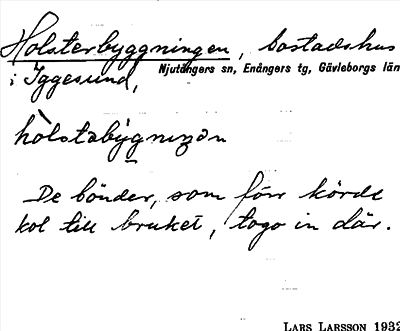 Holsterbyggningen, bostadshus
Njutångers sn, Enångers tg, Gävleborgs län
i Iggesund,
hòlstabỳgnıŋən
De bönder, som förr körde
kol till bruket, togo in där.
LARS LARSSON 1932